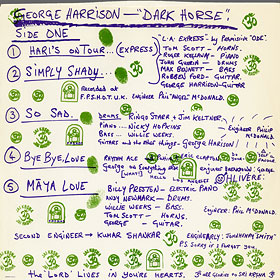 GEORGE HARRISON - "DARK HORSE"
SIDE ONE
① HARI'S ON TOUR... (EXPRESS)
"L.A. EXPRESS" - by Permission "ODE"
TOM SCOTT - HORNS.
ROGER KELLAWAY - PIANO
JOHN GUERIN - DRUMS
MAX BENNETT - BASS
ROBBEN FORD - GUITAR.
GEORGE HARRISON - GUITAR
② SIMPLY SHADY...
Recorded at
F.P.S.H.O.T. U.K. Engineer Phil "ANGEL" McDONALD.
③ SO SAD.
DRUMS RINGO STARR & JIM KELTNER
PIANO - NICKY HOPKINS
BASS - WILLIE WEEKS
Guitars and the other things - George Harrison
Engineer Phil McDONALD
④ BYE BYE, LOVE
RHYTHM ACE
ERIC CLAPTON
George on Everything else
⑤ MĀYA LOVE
OHLIVERE:
BILLY PRESTON - ELECTRIC PIANO
ANDY NEWMARK - DRUMS
WILLIE WEEKS - BASS.
TOM SCOTT - HORNS.
GEORGE - GUITAR.
Engineer: Phil McDONALD.
SECOND ENGINEER → KUMAR SHANKAR
The 'Lord' LIVES IN YOU'RE HEARTS.